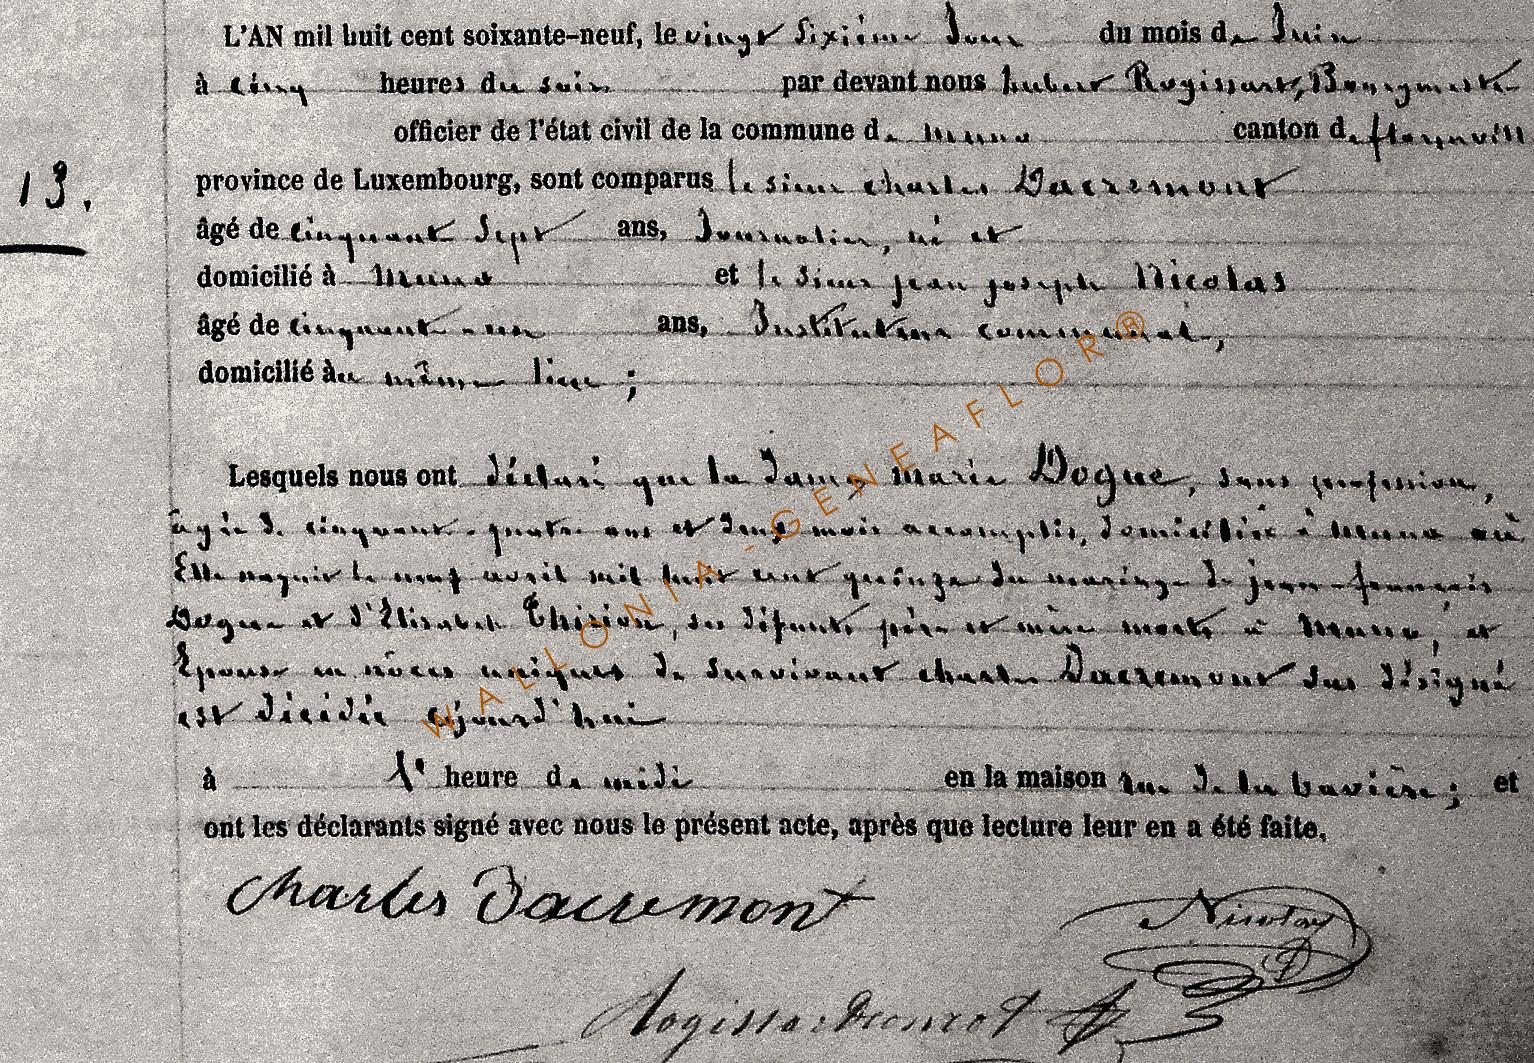 L'AN mil huit cent soixante-neuf, le vingt sixième Jour du mois de Juin
à cinq heures du soir par devant nous hubert Rogissart, Bourgmestre
officier de l'état civil de la commune de muno canton de florenville
13.
province de Luxembourg, sont comparus le sieur charles Dacremont
âgé de cinquante Sept ans, Journalier, né et
domicilié à muno et le sieur jean joseph Nicolas
âgé de cinquante-un ans, Instituteur communal,
domicilié au même lieu ;
Lesquels nous ont déclaré que la Dame marie Dogue, sans profession,
âgée de cinquante-quatre ans et deux mois accomplis, domiciliée à muno où
Elle naquit le neuf avril mil huit cent quinze du mariage de jean-françois
Dogue et d'Elisabeth Thirion, ses défunts père et mère morts à Muno, et
Epouse en nôces uniques de survivant charles Dacremont sus désigné
est décédée ajourd'hui
à 1e heure de midi en la maison rue de la bavière ; et
ont les déclarants signé avec nous le présent acte, après que lecture leur en a été faite.
charles Dacremont
Nicolas
Rogissart
WALLONIA-GENEAFLOR®